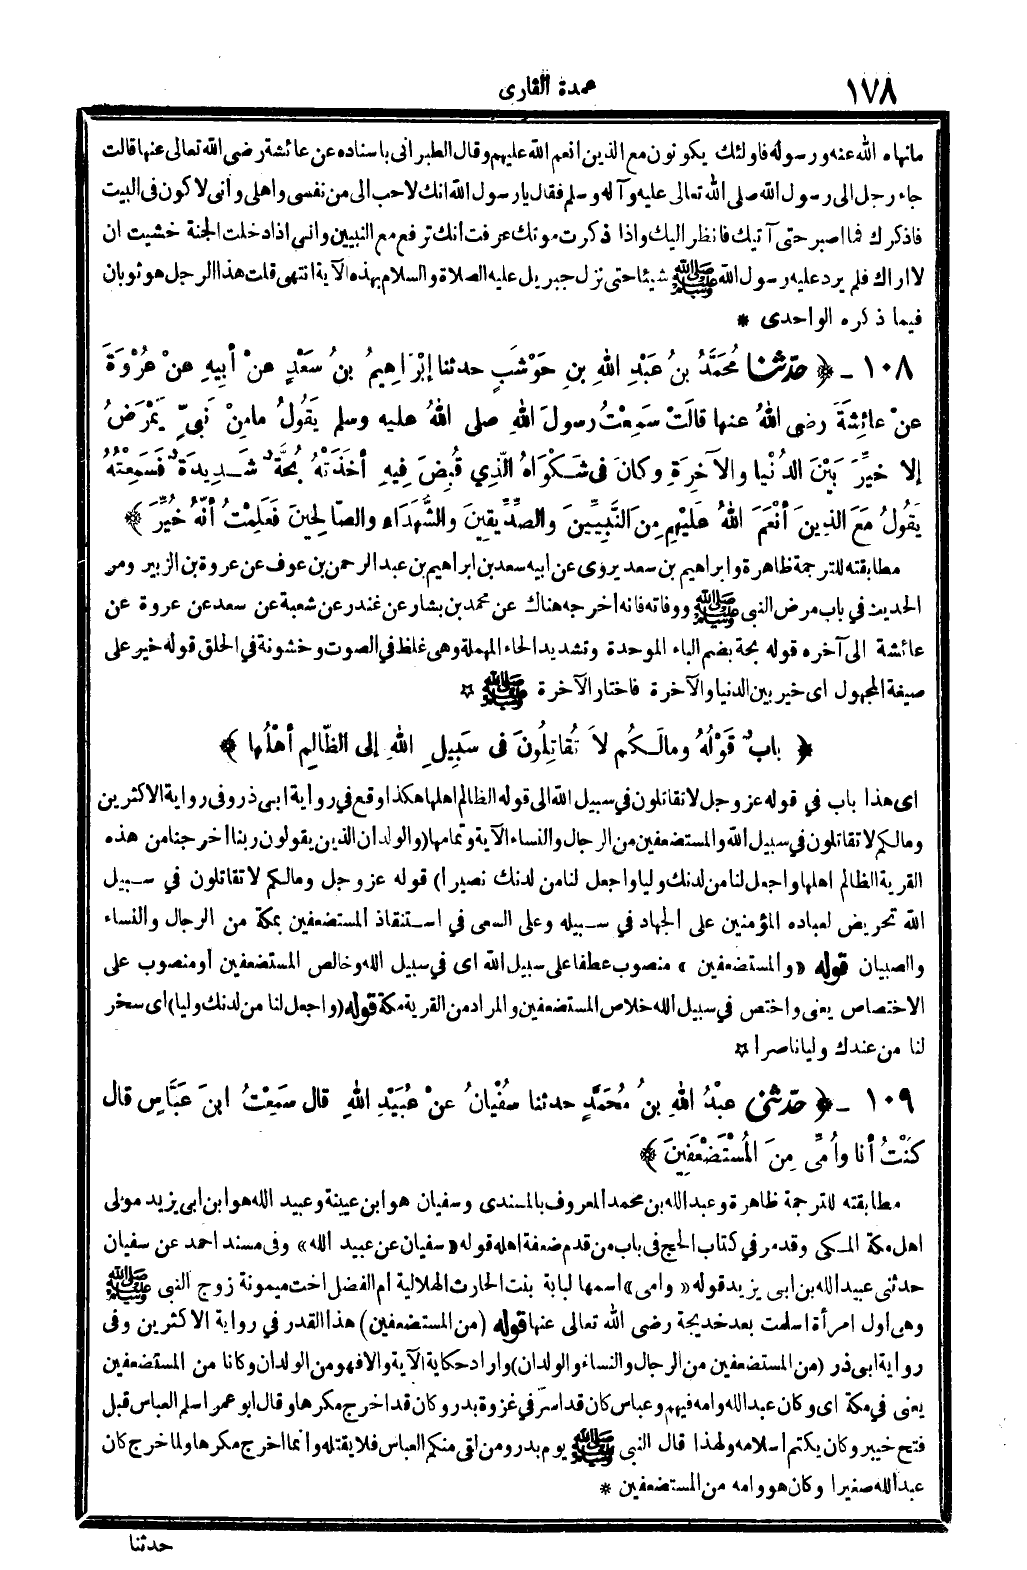 ١٧٨
عمدة القارى
مانهاه الله عنه ورسوله فاولئك يكونون مع الذين انعم الله عليهم وقال الطبرانى باسناده عن عائشة رضى الله تعالى عنها قالت
جاء رجل الى رسول الله صلى الله تعالى عليه وآله وسلم فقال يارسول الله انك لاحب الى من نفسى واهلى وانى لاكون فى البيت
فاذكرك فما اصبر حتى آتيك فانظر اليك واذا ذكرت موتك عرفت أنك ترفع مع النبيين وانى اذا دخلت الجنة خشيت ان
لا اراك فلم يرد عليه رسول الله ﷺ شيئا حتى نزل جبريل عليه الصلاة والسلام بهذه الآية انتهى قلت هذا الرجل هو ثوبان
فيما ذكره الواحدى *
١٠٨ ـ ﴿ حدّثنا مُحَمَّدُ بنُ عَبْدِ اللهِ بنِ حَوْشَبٍ حدثنا إبْرَاهِيمُ بنُ سَعْدٍ عنْ أبِيهِ عنْ عُرْوَةَ
عنْ عائِشَةَ رضى اللهُ عنها قالَتْ سَمِعْتُ رسولَ اللهِ صلى اللهُ عليه وسلم يَقُولُ مامِنْ نَبىٍّ يَمْرَضُ
إلا خيِّرَ بَيْنَ الدُنْيا والآخِرَةِ وكانَ فى شَكْوَاهُ الَّذِي قُبِضَ فِيهِ أخَذَتْهُ بُحَّةٌ شَدِيدَةٌ فَسَمِعْتُهُ
يَقُولُ مَعَ الذِينَ أنْعَمَ اللهُ عَلَيْهِمِ مِنَ النَّبِيِّينَ والصِّدِّيقِينَ والشُّهَدَاءِ والصَّالِحِينَ فَعَلِمْتُ أنَّهُ خُيِّرَ ﴾
مطابقته للترجمة ظاهرة وابراهيم بن سعد يروى عن ابيه سعد بن ابراهيم بن عبد الرحمن بن عوف عن عروة بن الزبير ومر
الحديث في باب مرض النبى ﷺ ووفاته فانه أخرجه هناك عن محمد بن بشار عن غندر عن شعبة عن سعد عن عروة عن
عائشة الى آخره قوله بحة بضم الباء الموحدة وتشديد الحاء المهملة وهى غلظ في الصوت وخشونة في الحلق قوله خير على
صيغة المجهول اى خير بين الدنيا والآخرة فاختار الآخرة ﷺ ☆
﴿ بابٌ قَوْلُهُ ومالَكُم لاَ تُقاتِلُونَ فى سَبِيلِ اللهِ إلى الظَّالِمِ أهْلُها ﴾
اى هذا باب في قوله عز وجل لا تقاتلون في سبيل الله الى قوله الظالم اهلها هكذا وقع في رواية ابى ذر وفى رواية الاكثرين
ومالكم لا تقاتلون في سبيل الله والمستضعفين من الرجال والنساء الآية وتمامها (والولدان الذين يقولون ربنا أخرجنا من هذه
القرية الظالم اهلها واجعل لنا من لدنك وليا واجعل لنا من لدنك نصيرا) قوله عز وجل ومالكم لا تقاتلون في سبيل
الله تحريض لعباده المؤمنين على الجهاد في سبيله وعلى السعى في استنقاذ المستضعفين بمكة من الرجال والنساء
والصبيان قوله «والمستضعفين» منصوب عطفا على سبيل الله اى في سبيل الله وخالص المستضعفين أو منصوب على
الاختصاص يعنى واختص في سبيل الله خلاص المستضعفين والمراد من القرية مكة قوله (واجعل لنا من لدنك وليا) اى سخر
لنا من عندك وليا ناصرا ☆
١٠٩ ـ ﴿ حدّثنى عبْدُ اللهِ بنُ مُحَمَّدٍ حدثنا سُفْيانُ عنْ عُبَيْدِ اللهِ قال سَمِعْتُ ابنَ عَبَّاسٍ قال
كُنْتُ أنا وأُمِّى مِنَ المُسْتَضْعَفِينَ ﴾
مطابقته للترجمة ظاهرة وعبد الله بن محمد المعروف بالمسندى وسفيان هو ابن عيينة وعبيد الله هو ابن ابى يزيد مولى
اهل مكة المكى وقد مر في كتاب الحج فى باب من قدم ضعفة اهله قوله «سفيان عن عبيد الله» وفى مسند احمد عن سفيان
حدثنى عبيد الله بن ابى يزيد قوله «وامى» اسمها لبابة بنت الحارث الهلالية أم الفضل اخت ميمونة زوج النبى ﷺ
وهى اول امرأة اسلمت بعد خديجة رضى الله تعالى عنها قوله (من المستضعفين) هذا القدر في رواية الاكثرين وفى
رواية ابى ذر (من المستضعفين من الرجال والنساء والولدان) واراد حكاية الآية والافهو من الولدان وكانا من المستضعفين
يعنى في مكة اى وكان عبد الله وامه فيهم وعباس كان قد اسر في غزوة بدر وكان قد اخرج مكرها وقال ابو عمر اسلم العباس قبل
فتح خيبر وكان يكتم اسلامه ولهذا قال النبى ﷺ يوم بدر ومن لقى منكم العباس فلا يقتله وانما اخرج مكرها ولما خرج كان
عبد الله صغيرا وكان هو وامه من المستضعفين *
حدثنا